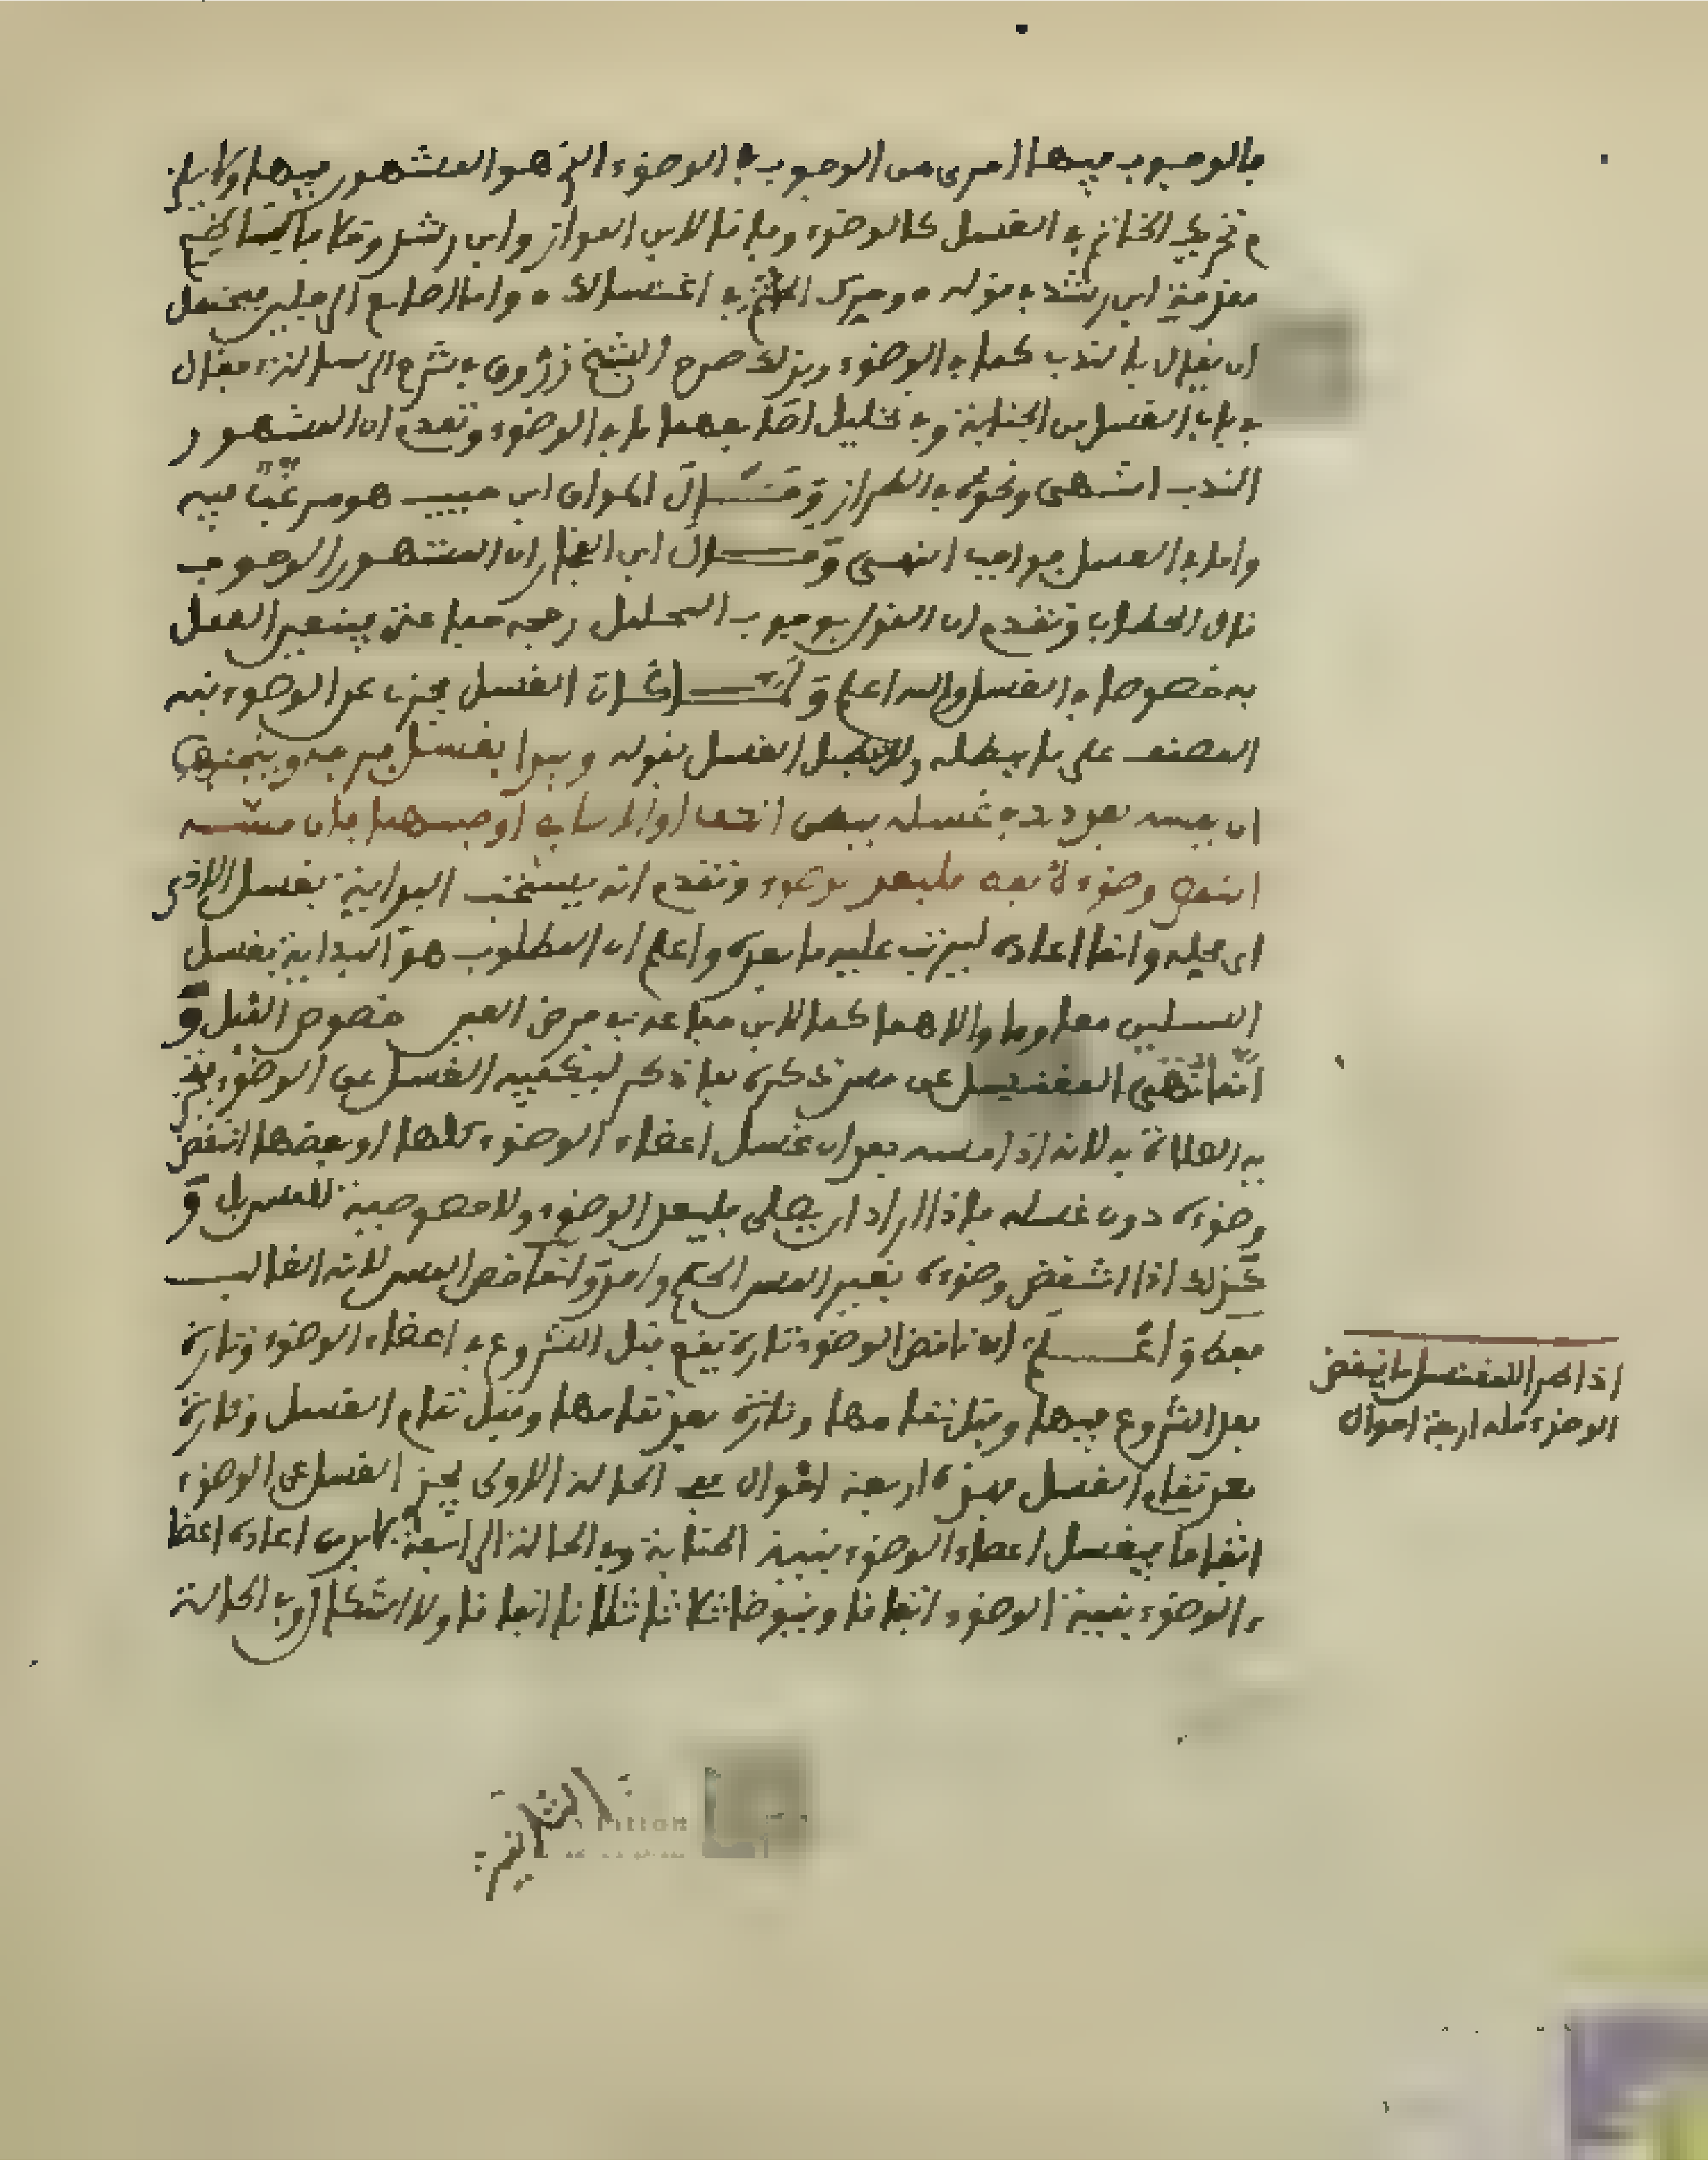 فالوجوب فيها احرى من الوجوب في الوضوء الذي هو المشهور فيها ولا يلز
م تحريك الخاتم في الغسل كالوضوء وفاقا لابن المواز وابن رشد وخلافا
مقدمة ابن رشد في قوله وحرك الخاتم في اغتسالك واما اصابع الرجلين فيحتمل
ان يقال بالندب كما في الوضوء وبذلك صرح الشيخ زروق في شرح الرسالة فقال
في باب الغسل من الجنابة وفي تخليل اصابعهما ما في الوضوء وتقدم ان المشهور
الندب انتهى ونحوه في الطراز وقال المواق ابن حبيب هو مرغب فيه
واما في الغسل فواجب انتهى وقال ابن الفخار ان المشهور الوجوب
قال الحطاب وتقدم ان القول بوجوب التخليل رجحه جماعة فيتعين العمل
به خصوصا في الغسل والله اعلم ولما كان الغسل يجزي عن الوضوء نبه
المصنف على ما يبطله ولا يبطل الغسل بقوله ويبدا بغسل فرجه ويجتنب
ان يمسه بعد في غسله ببطن الكف او الاصابع او جنبهما فان مسه
انتقض وضوءه فليعد وضوءه وتقدم انه يستحب البداية بغسل الاذى
اي محله وانما اعاده ليرتب عليه ما بعده واعلم ان المطلوب هو البداية بغسل
السبيلين معا وما والاهما كما لابن جماعة في فرض العين خصوص القبل و
انما نهي المغتسل عن مس ذكره بما ذكر ليكفيه الغسل عن الوضوء فتجز
يه الصلاة به لانه اذا مسه بعد ان غسل اعضاء الوضوء كلها او بعضها انتقض
وضوءه دون غسله فاذا اراد ان يصلي فليعد الوضوء ولا خصوصية للمس بل و
كذلك اذا انتقض وضوءه بغير المس الحكم واحد وانما خص المس لانه الغالب
واعلم ان ناقض الوضوء تارة يقع قبل الشروع في اعضاء الوضوء وتارة
بعد الشروع فيها وقبل تمامها وتارة بعد تمامها وقبل تمام الغسل وتارة
بعد تمام الغسل فهذه اربعة احوال ففي الحالة الاولى يجزي الغسل عن الوضوء
اتفاقا فيغسل اعضاء الوضوء بنية الجنابة وفي الحالة الرابعة لا بد من اعادة اعضا
ء الوضوء بنية الوضوء اتفاقا ويتوضا ثلاثا ثلاثا اتفاقا ولا اشكال وفي الحالة
الثانية
اذا طرا للمغتسل ما ينقض
الوضوء فله اربعة احوال